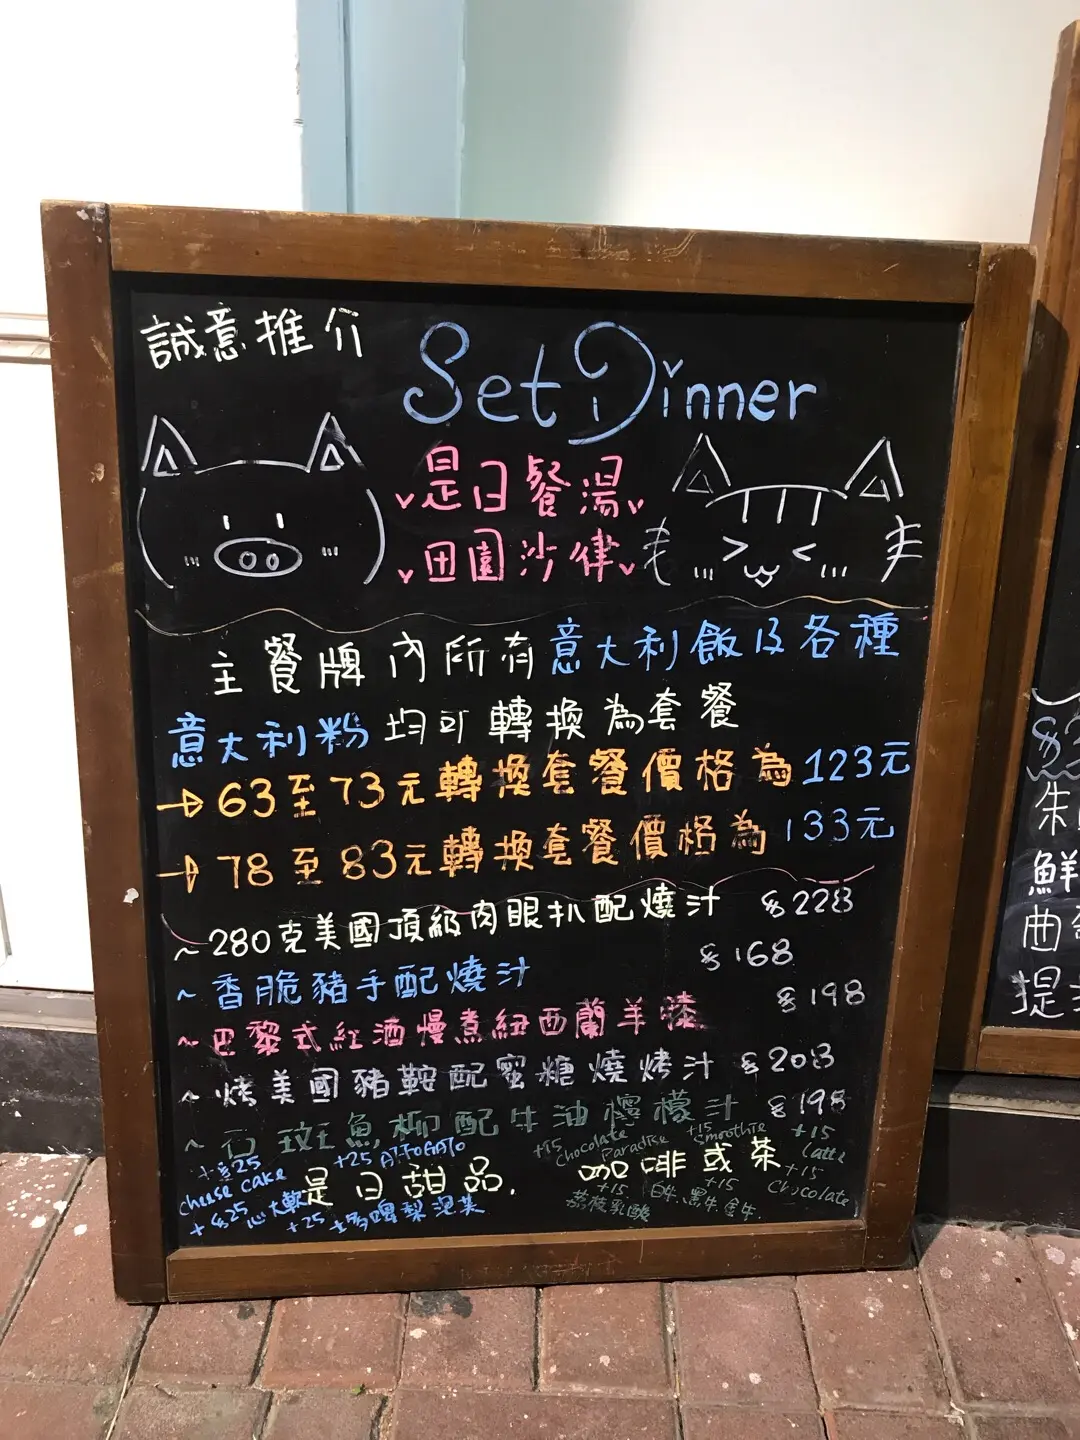 誠意推介
Set Dinner
是日餐湯
田園沙律
主餐牌內所有意大利飯及各種
意大利粉均可轉換為套餐
→63至73元轉換套餐價格為123元
→78至83元轉換套餐價格為133元
~280克美國頂級肉眼扒配燒汁 $228
~香脆豬手配燒汁 $168
~巴黎式紅酒慢煮紐西蘭羊膝 $198
~烤美國豬鞍配蜜糖燒烤汁 $208
~石斑魚柳配牛油檸檬汁 $198
+$25 cheese cake
+25 AFFOGATO
+15 Chocolate Paradise
+15 Smoothie
+15 Latte
是日甜品.
咖啡或茶
+15 Chocolate
+$25 心太軟
+25
+15 荔枝乳酸
+15 白牛.黑牛.金牛.
$3
朱
鮮
曲
提